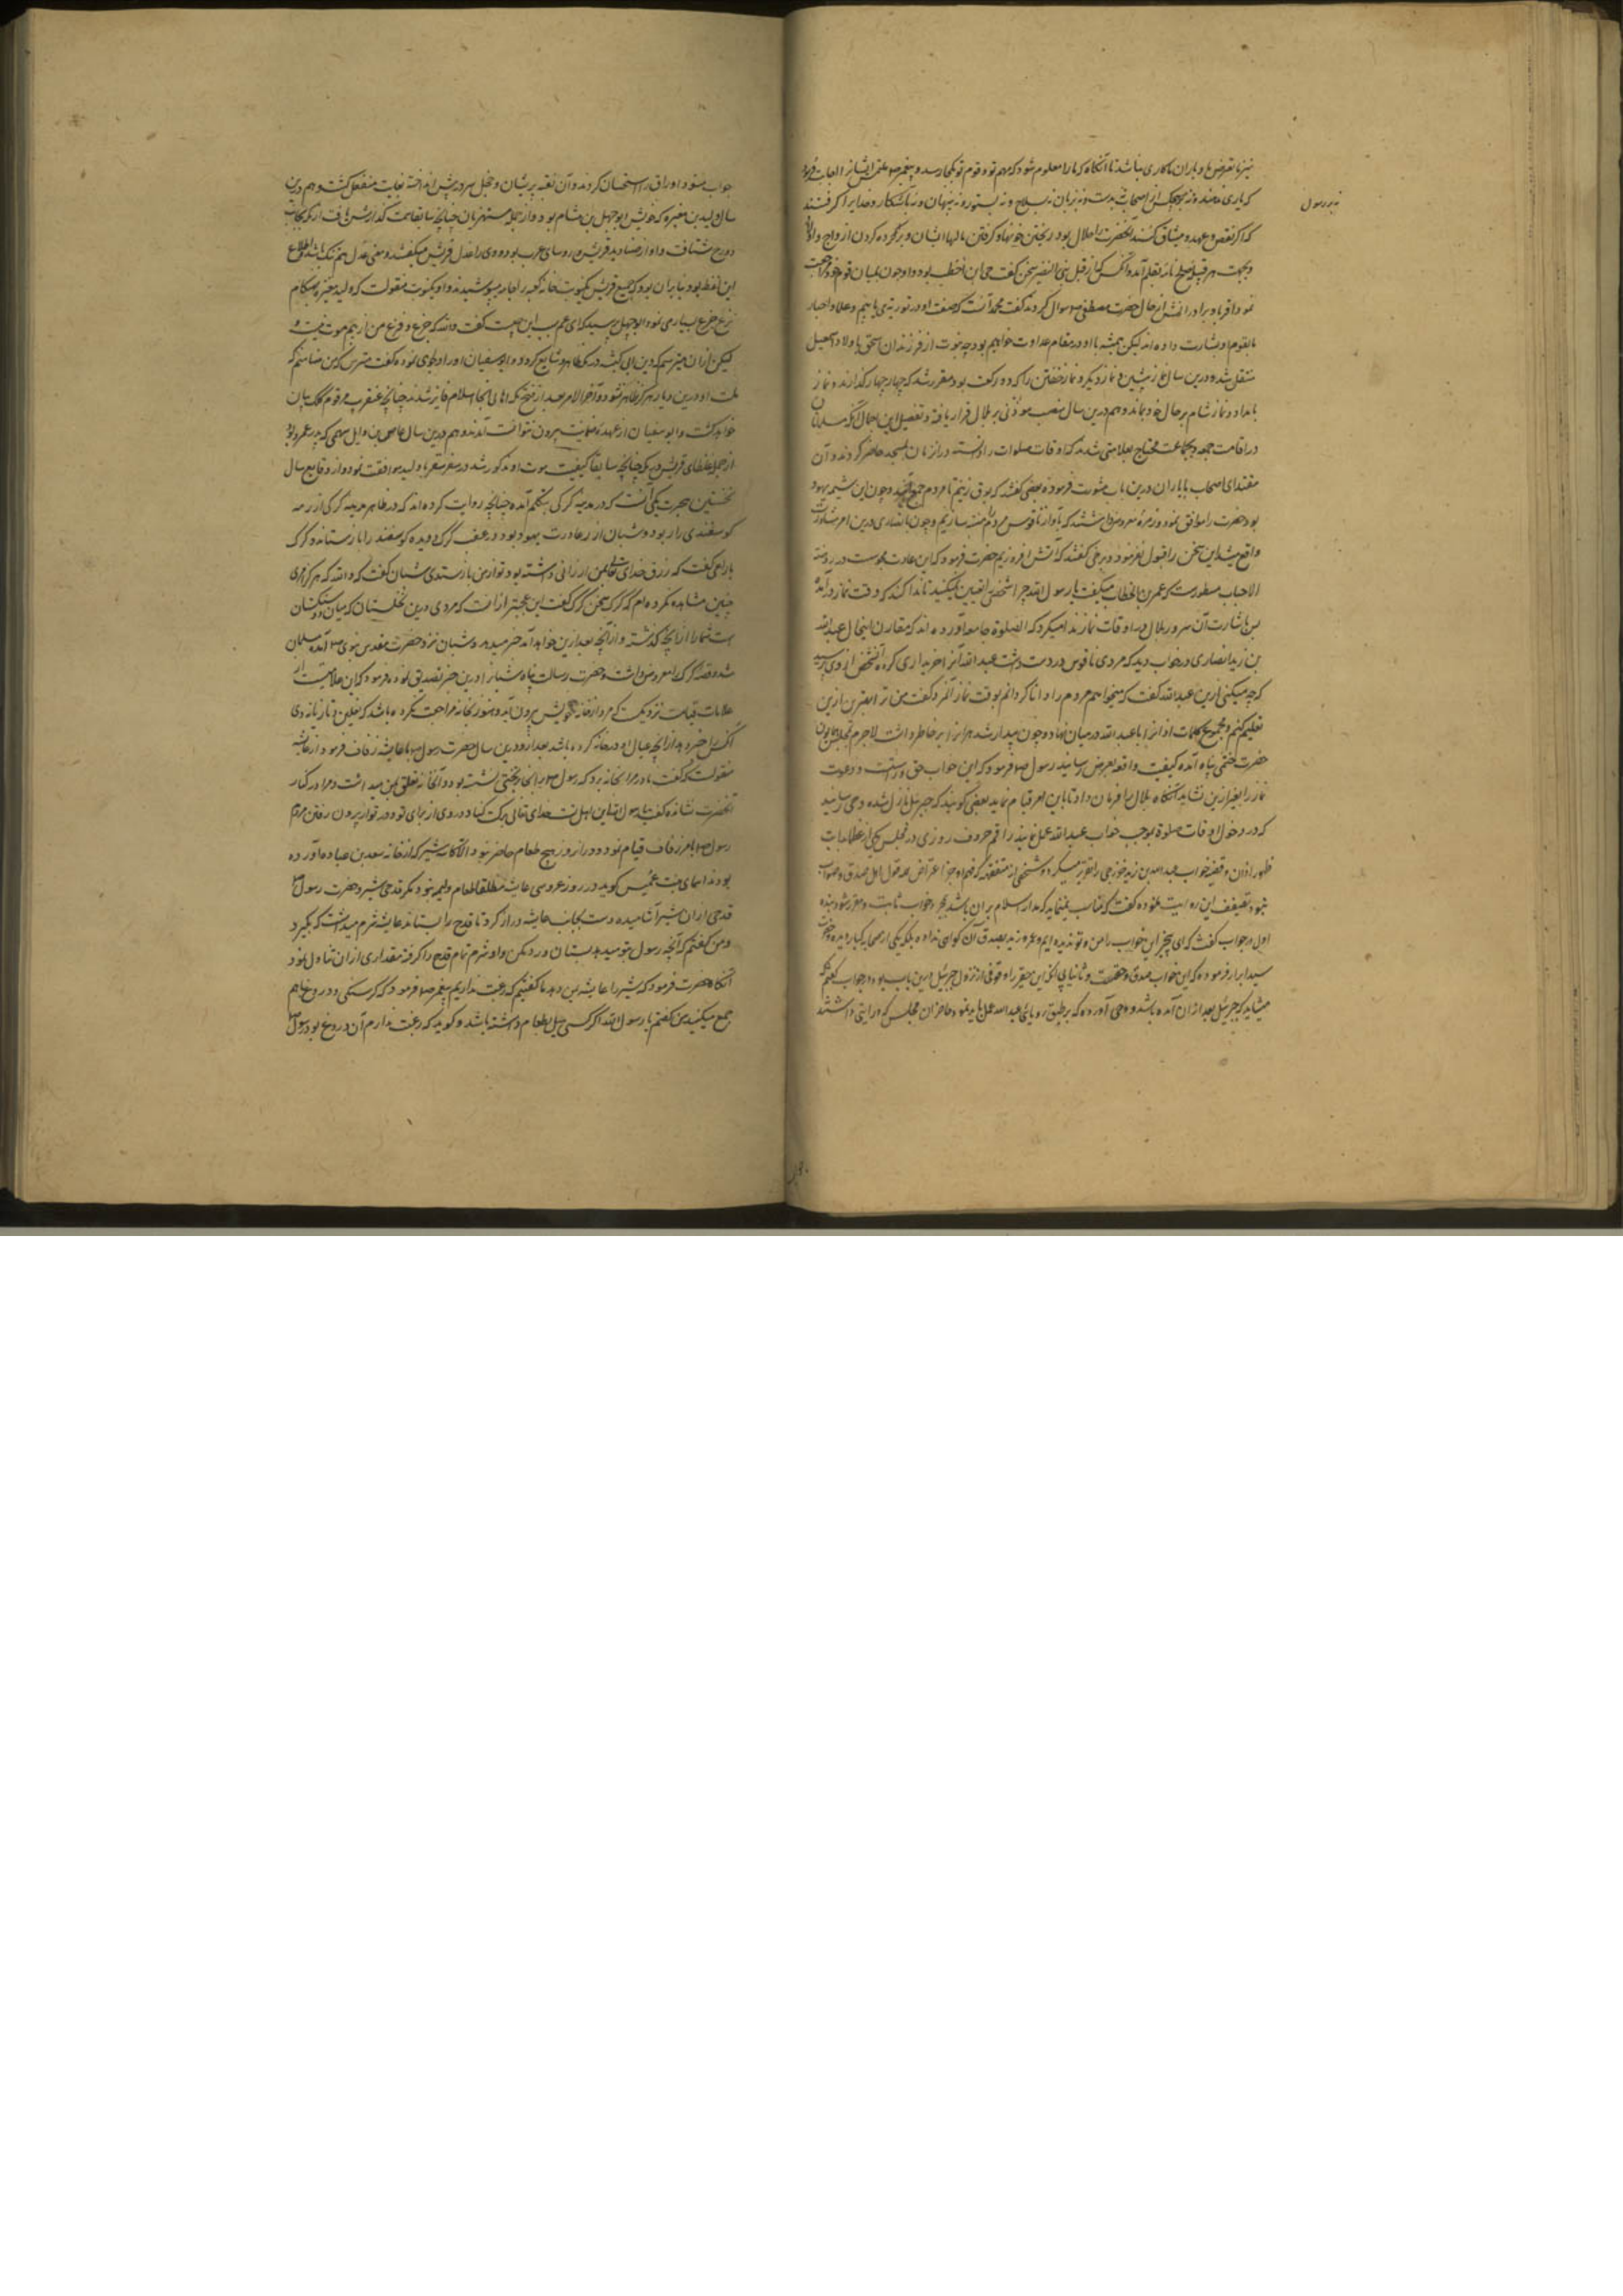 نیز تا تعرض ما و یاران ما کاری نباشد تا آنگاه که ما را معلوم شود که مهم تو و قوم تو بکجا رسد و پیغمبر صلعم ملتمس ایشان را
بر رسول
که یاری ندهند و نه بر هیچ یک از اصحاب نه بدست و نه بزبان نه بسلاح و نه بستور و نه پنهان و نه آشکارا و خدایرا گرفتند
که اگر نقض عهد و میثاق کنند آنحضرت را حلال بود ریختن خونها و گرفتن مالها ایشان و برده کردن ازواج و اولاد
و بجهت هر قبیله صلح نامه بقلم آمد و آنکس که از قبل بنی النضیر سخن گفت حی ابن اخطب بود و او چون بمیان قوم خود مراجعت
نمود اقربا و برادرانش از حال حضرت مصطفی سوال کردند گفت محمد آنست که صفت او در توریة می یابیم و علما و احبار
ما بقوم او بشارت داده اند لیکن همیشه با او در مقام عداوت خواهیم بود چه نبوت از فرزندان اسحق باولاد اسمعیل
منتقل شد و درین سال نماز پیشین و نماز دیگر و نماز خفتن را که دو رکعت بود مقرر شد که چهار چهار گذارند و نماز
بامداد و نماز شام بر حال خود بماند و هم درین سال منصب موذنی بر بلال قرار یافت و تفصیل این اجمال آنکه مسلمانان
در اقامت جمعه و جماعت محتاج بعلامتی شدند که اوقات صلوات را دانسته در آن زمان بمسجد حاضر گردند و آن
مقتدای اصحاب با یاران درین باب مشورت فرموده بعضی گفتند که بوق زنیم تا مردم جمع آیند و چون این شیمه یهود
بود حضرت را موافق ننمود و زمرۀ معروض داشتند که بآواز ناقوس مردم را متنبه سازیم و چون با نصاری درین امر مشارکت
واقع میشد این سخن را قبول نفرمود و برخی گفتند که آتش افروزیم حضرت فرمود که این عادت مجوس است و در روضة
الاحباب مسطور است که عمر بن الخطاب میگفت یا رسول الله چرا شخصی را تعیین نمیکنید تا ندا کند که وقت نماز درآمده
پس باشارت آن سرور بلال در اوقات نماز ندا میکرد که الصلوة جامعة آورده اند که مقارن اینحال عبد الله
بن زید انصاری در خواب دید که مردی ناقوس در دست داشت عبد الله آنرا خریداری کرده آنشخص از وی پرسید
که چه میکنی ازین عبد الله گفت که میخواهم مردم را دانا گردانم بوقت نماز آنمرد گفت من ترا بهتر ازین
تعلیم کنم و مجموع کلمات اذان را با عبد الله در میان نهاد و چون بیدار شد هر آنرا بر خاطر داشت لاجرم بمجلس همایون
حضرت ختمی پناه آمده کیفیت واقعه بعرض رسانید رسول صلعم فرمود که این خواب حق و راستست و دعوت
نماز را بغیر ازین نشاید آنگاه بلال را فرمان داد تا باین امر قیام نماید بعضی گویند که جبرئیل نازل شده وحی رسانید
که در دخول اوقات صلوة بموجب خواب عبد الله عمل نمایند راقم حروف روزی در مجلس یکی از عظما بباب
ظهور اذان و قضیه خواب عبد الله بن زید خزرجی را تقریر میکرد و شخصی از متفقهه که
نبود تضعیف این روایت نموده گفت که مناسب نمینماید که مدار اسلام بر آن باشد بمجرد خواب ثابت و مقرر شود بنده
اول در جواب گفت که ای
سید ابرار فرموده که این خواب صدق و حقست و ثانیا این حقیر را وقوفی از نزول جبرئیل درین باب بود در جواب گفتم که
میشاید که جبرئیل بعد از آن آمده باشد و وحی آورده که بر طبق رویای عبد الله عمل باید نمود حاضران مجلس که درایتی داشتند
جواب شنود اوراق را استحسان کردند و آن فقیه پریشان و خجل سر در پیش انداخته بغایت منفعل گشت و هم درین
سال ولید بن مغیره که خویش ابوجهل بن هشام بود و از جمله مستهزیان چنانچه سابقا سمت گذارش یافت از مکه بجانب
دوزخ شتافت و او از صنادید قریش و روسای عرب بود و وی را عدل قریش میگفتند و معنی عدل هم تنگ باشد و اطلاع
این لفظ بود بنا بر آن بود که جمیع قریش یکنوبت خانه کعبه را جامه میپوشیدند و او یکنوبت منقولست که ولید مغیره بهنگام
نزع جزع بسیاری نمود ابوجهل پرسید که ای عم سبب این چیست گفت والله که جزع و فزع من از بیم موت نیست و
لیکن از آن میترسم که دین ابی کبشه در مکه ظاهر و شایع گردد و ابوسفیان او را دلجوی نموده گفت مترس که من ضامنم که
ملت او درین دیار هرگز ظاهر نشود و آخر الامر بعد از فتح مکه اهالی آنجا باسلام فایز شدند چنانچه عنقریب مرقوم کلک بیان
خواهد گشت و ابوسفیان از عهده ضمانیت بیرون نتوانست آمد و هم درین سال عاص بن وایل سهمی که پدر عمرو بود
از جمله عظمای قریش در مکه چنانچه سابقا کیفیت موت او مذکور شد در سفر سقر با ولید موافقت نمود و از وقایع سال
نخستین هجرت یکی آنست که در مدینه گرگی بتکلم آمده چنانچه روایت کرده اند که در ظاهر مدینه گرگی از رمه
گوسفندی را ربود و شبان از عادت یهود بود در عقب گرگ دویده گوسفند را باز ستاند و گرگ
با راعی گفت که رزق خدای تعالی بمن ارزانی داشته بود تو از من باز ستدی شبان گفت که والله که هرگز امری
چنین مشاهده نکرده ام که گرگ سخن کند گرگ گفت این عجبتر از آنست که مردی درین نخلستان که میان دو سنگستان
است شما را از آنچه گذشته و از آنچه بعد ازین خواهد آمد خبر میدهد و شبان نزد حضرت مقدس نبوی آمده مسلمان
شد و قصه گرگ را معروض داشت و حضرت رسالت پناه شبانرا درین خبر تصدیق نموده فرمود که این علامتیست از
علامات قیامت نزدیکست که مرد از خانه خویش بیرون آید و هنوز بخانه مراجعت نکرده باشد که نعلین و تازیانه وی
آنکس را خبر دهد از آنچه عیال او در خانه کرده باشد بعد ازو و درین سال حضرت رسول با عایشه زفاف فرمود از عایشه
منقولست که گفت مادر مرا بخانه برد که رسول در آنجا بر تختی نشسته بود و آنخانه تعلق بمن میداشت و مرا در کنار
آنحضرت نشانده گفت یا رسول الله این اهل تست خدای تعالی برکت کناد در وی از برای تو و در تو از برای وی
رسول صلعم بامر زفاف قیام نمود و در آن روز هیچ طعام حاضر نبود الا کاسه شیر که از خانه سعد بن عباده آورده
بودند اسمای بنت عمیس گوید در روز عروسی عایشه مطلقا طعام ولیمه نبود مگر قدحی شیر و حضرت رسول
قدحی از آن شیر آشامیده دست بجانب عایشه دراز کرد تا قدح را بستاند عایشه شرم میداشت که بگیرد
و من گفتم که آنچه رسول بتو میدهد بستان و رد مکن و او بشرم تمام قدح را گرفته مقداری از آن تناول نمود
آنگاه حضرت فرمود که شیر را عایشه بمن دهد ما گفتیم که رغبت نداریم پیغمبر صلعم فرمود که گرسنگی و دروغ با هم
جمع میکنید من گفتم یا رسول الله اگر کسی میل بطعام داشته باشد و گوید که رغبت ندارم آن دروغ بود رسول